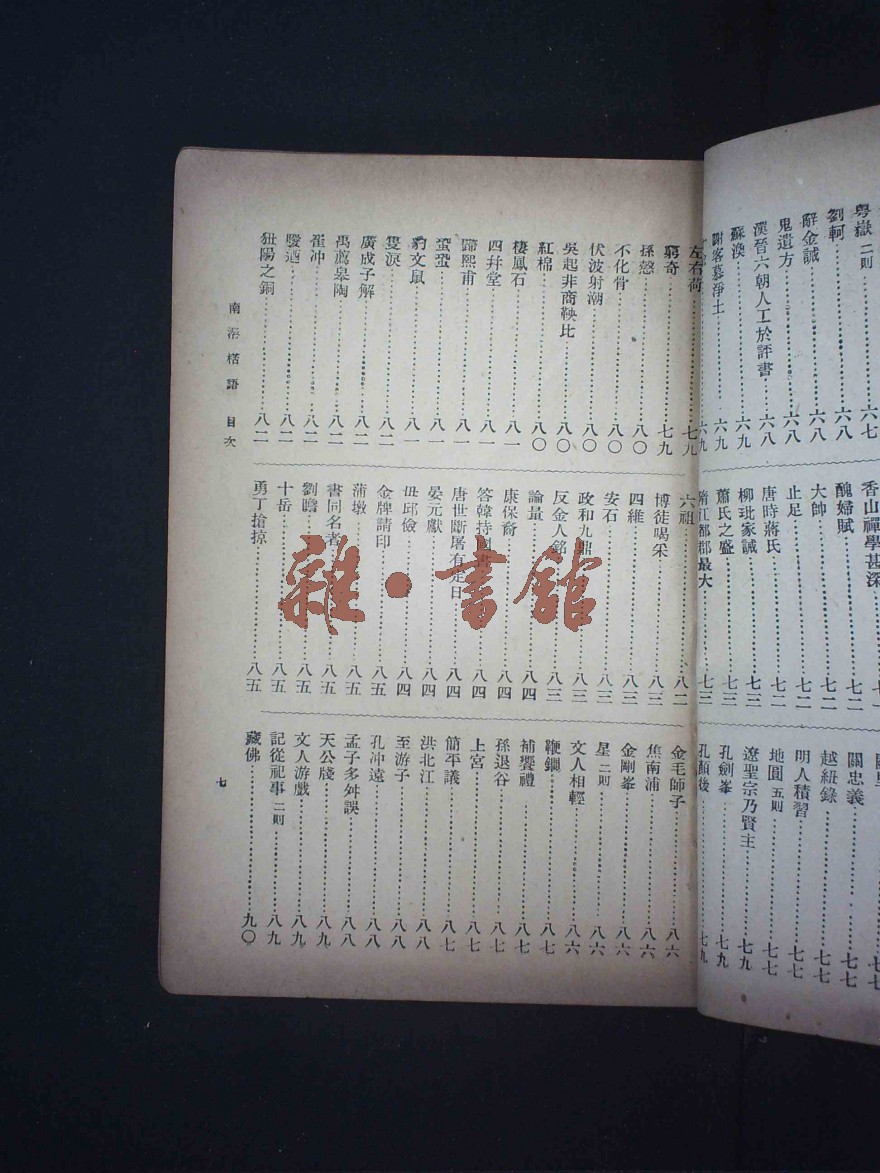 粵嶽 二則……六七
劉軻……六八
辭金誠……六八
鬼遺方……六八
漢晉六朝人工於評書……六八
蘇渙……六九
謝客慕淨土……六九
香山禪學甚深
醜婦賦……七二
大帥……七二
止足……七二
唐時蔣氏……七二
柳玭家誡……七三
蕭氏之盛……七三
隋江都郡最大……七三
關忠義……七七
越紐錄……七七
明人積習……七七
地圓 五則……七七
遼聖宗乃賢主……七九
孔劍峯……七九
孔顏後……七九
左右荷……七九
窮奇……七九
孫愨……八〇
不化骨……八〇
伏波射潮……八〇
吳起非商鞅比……八〇
紅棉……八〇
棲鳳石……八一
四幷堂……八一
歸熙甫……八一
螢蛩……八一
豹文鼠……八一
雙淚……八二
廣成子解……八二
禹薦皋陶……八二
崔冲……八二
駿迺……八二
狃陽之銅……八二
六祖……八二
博徒喝采……八三
四維……八三
安石……八三
政和九鼎……八三
反金人銘……八三
論量……八四
康保裔……八四
答韓持國書……八四
唐世斷屠有定日……八四
晏元獻……八四
毌邱儉……八四
金牌請印……八五
蒲墩……八五
書同名者……八五
劉瞻……八五
十岳……八五
勇丁搶掠……八五
金毛師子……八六
焦南浦……八六
金剛峯……八六
星 二則……八六
文人相輕……八六
鞭鐧……八七
補饗禮……八七
孫退谷……八七
上宮……八七
簡平議……八七
洪北江……八八
至游子……八八
孔冲遠……八八
孟子多舛誤……八八
天公牋……八九
文人游戲……八九
記從祀事 二則……八九
藏佛……九〇
南海楛語 目次
七
雜·書館